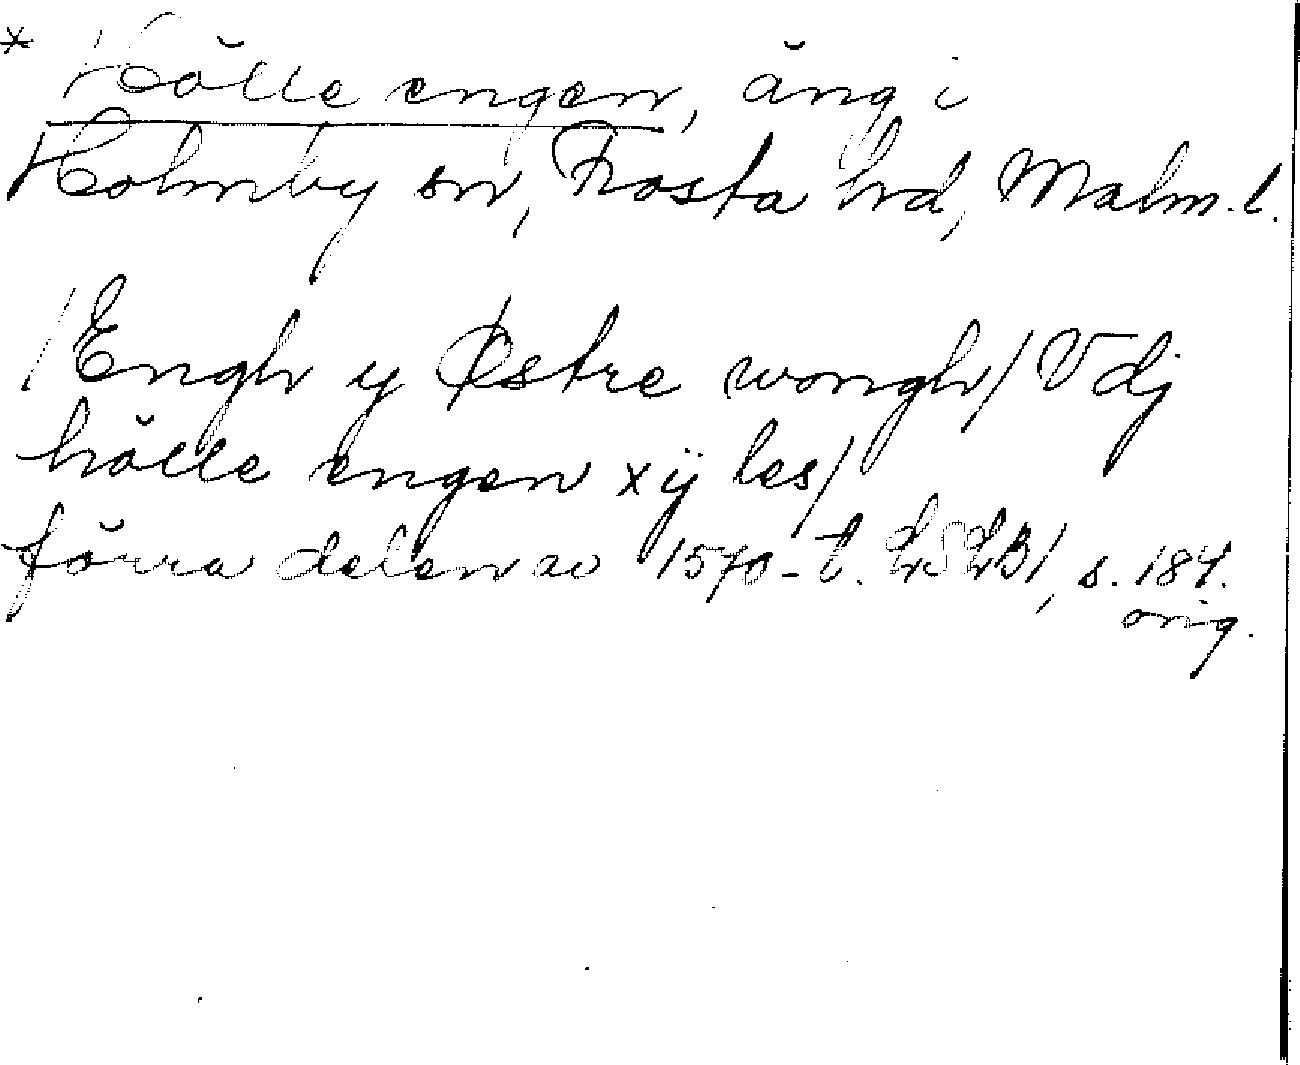 * Hölle engen, äng i
Holmby sn, Frosta hd, Malm.l.
/Engh y Østre wongh/ Vdj
hölle engen xij les/
förra delen av 1570-t. LSLB1, s. 184.
orig.